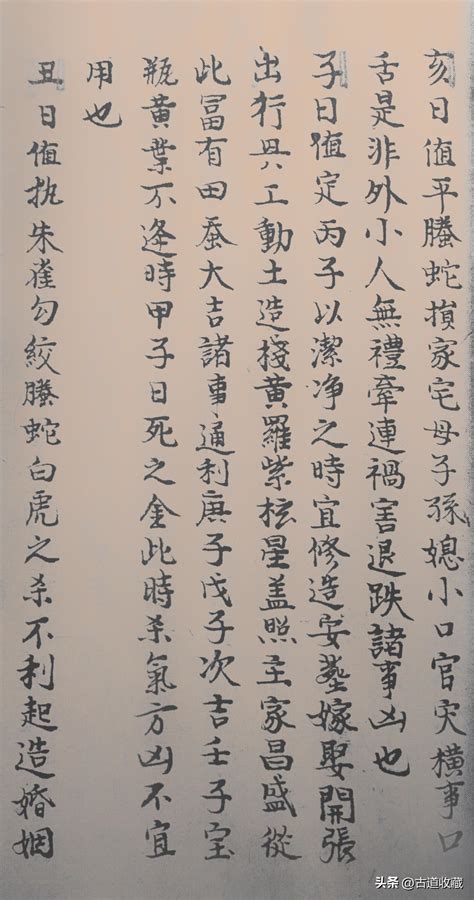 亥日值平螣蛇損家宅母子孫媳小口官灾橫事口
舌是非外小人無禮牽連禍害退跌諸事凶也
子日值定丙子以潔净之時宜修造安塟嫁娶開張
出行興工動土造棧黃羅紫栍星盖照主家昌盛從
此冨有田蚕大吉諸事通利庚子戊子次吉壬子宝
瓶黃葉不逢時甲子日死之金此時杀氣方凶不宜
用也
丑日值执朱雀勾絞螣蛇白虎之杀不利起造婚姻
头条@古道收藏